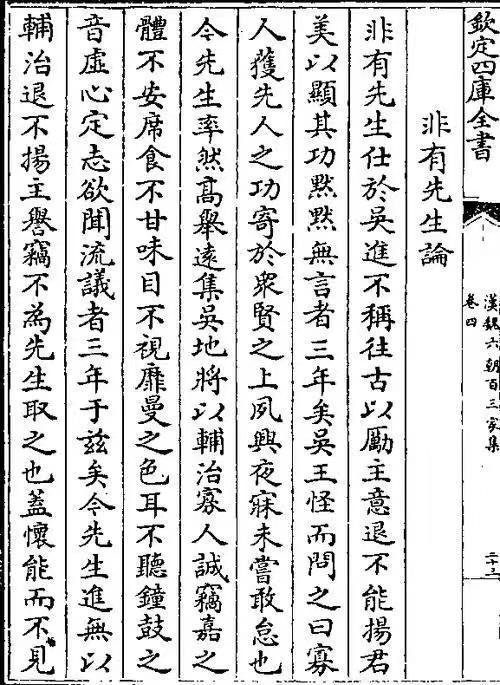 欽定四庫全書
漢魏六朝百三家集
卷四
二十二
非有先生論
非有先生仕於吳進不稱往古以厲主意退不能揚君
美以顯其功黙黙無言者三年矣吳王怪而問之曰寡
人獲先人之功寄於衆賢之上夙興夜寐未嘗敢怠也
今先生率然髙舉逺集吳地將以輔治寡人誠竊嘉之
體不安席食不甘味目不視靡曼之色耳不聽鐘鼓之
音虛心定志欲聞流議者三年于兹矣今先生進無以
輔治退不揚主譽竊不為先生取之也葢懷能而不見